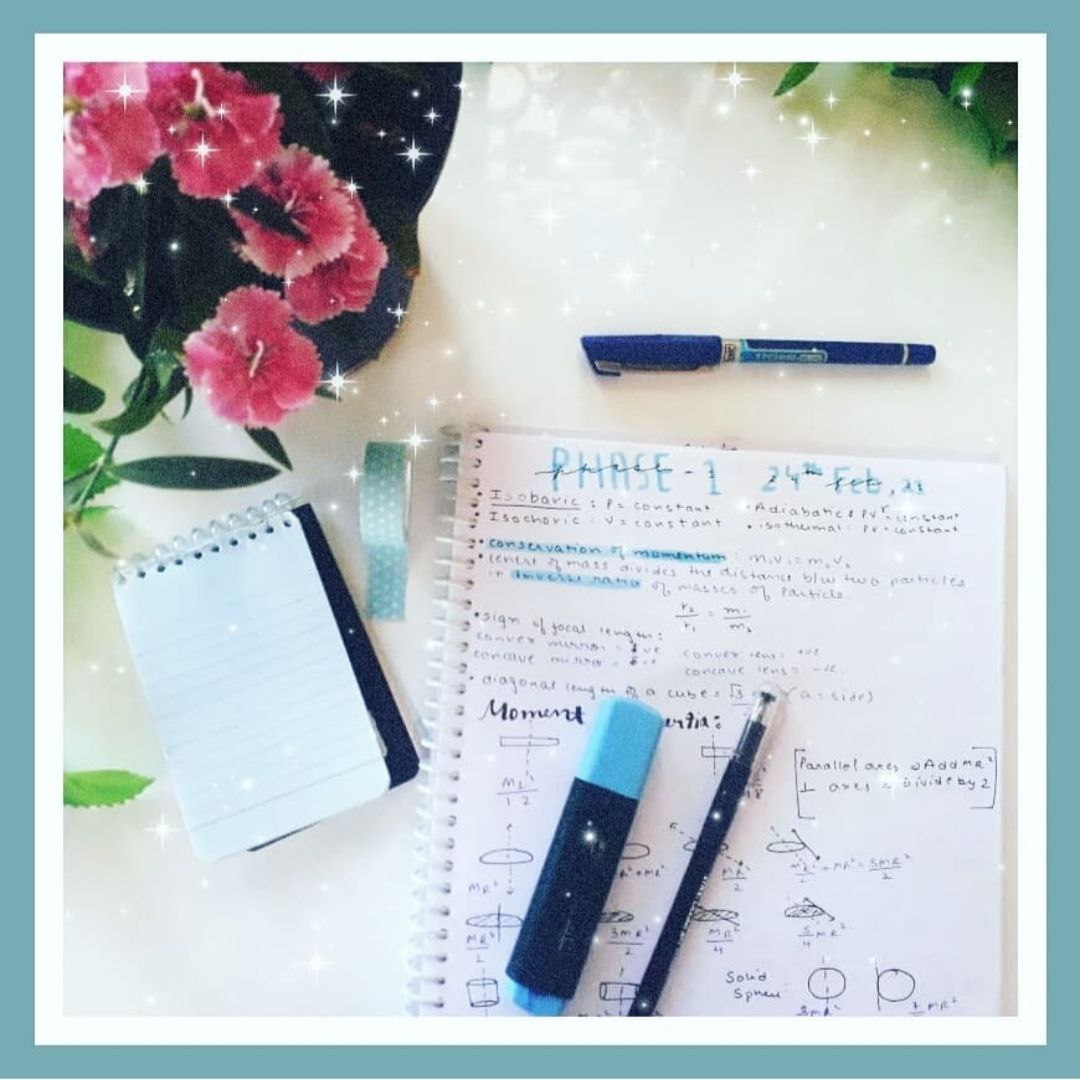 PHASE - 1 24th Feb, 21
Isobaric : P = constant
Isochoric : V = constant
• Adiabatic : PVʳ = constant
• isothermal : PV = constant
• conservation of momentum : m₁V₁ = m₂V₂
• centre of mass divides the distance b/w two particles
in inverse ratio of masses of particle.
r₂/r₁ = m₁/m₂
• sign of focal length :
convex mirror = +ve
concave mirror =
convex lens = +ve
concave lens = -ve
• diagonal length of a cube = √3 (a = side)
Moment ertia :
ML²/12
[Parallel axes → Add MR²
⊥ axes = Divide by 2]
MR²
R² + MR²
MR²/2
+ MR² = 3MR²/2
MR²/2
3MR²/2
MR²/4
5/4 MR²
Solid
Sphere
MR²